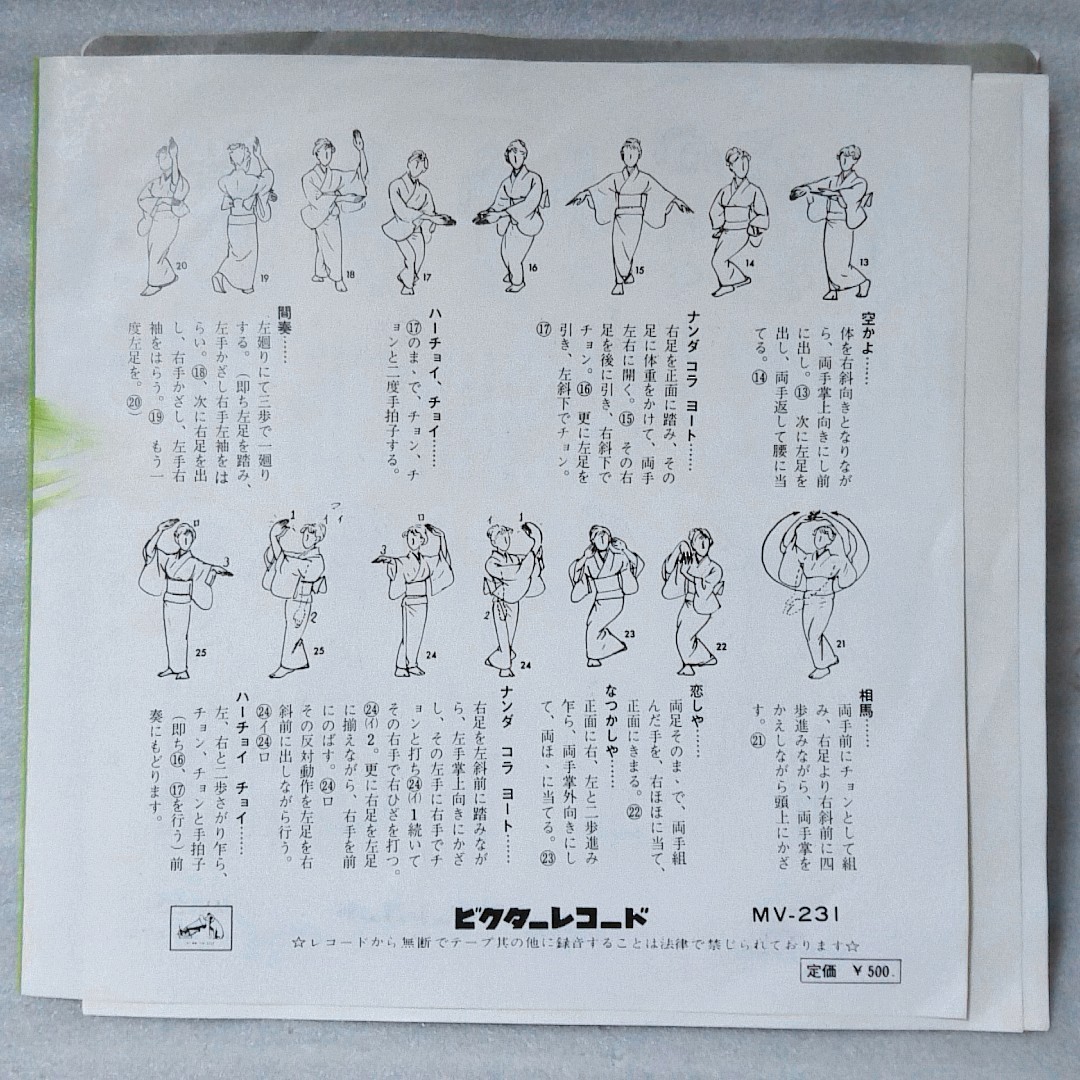 20
19
18
17
16
15
14
13
空かよ……
体を右斜向きとなりなが
ら、両手掌上向きにし前
に出し。⑬ 次に左足を
出し、両手返して腰に当
てる。⑭
ナンダ コラ ヨート……
右足を正面に踏み、その
足に体重をかけて、両手
左右に開く。⑮ その右
足を後に引き、右斜下で
チョン。⑯ 更に左足を
引き、左斜下でチョン。
⑰
ハーチョイ、チョイ……
⑰のまゝで、チョン、チ
ョンと二度手拍子する。
間奏……
左廻りにて三歩で一廻り
する。(即ち左足を踏み、
左手かざし右手左袖をは
らい。⑱、次に右足を出
し、右手かざし、左手右
袖をはらう。⑲ もう一
度左足を。⑳
ロ
3
25
1
イ
2
25
ロ
3
24
イ
1
2
24
23
22
21
相馬……
両手前にチョンとして組
み、右足より右斜前に四
歩進みながら、両手掌を
かえしながら頭上にかざ
す。㉑
恋しや……
両足そのまゝで、両手組
んだ手を、右ほほに当て、
正面にきまる。㉒
なつかしや……
正面に右、左と二歩進み
乍ら、両手掌外向きにし
て、両ほゝに当てる。㉓
ナンダ コラ ヨート……
右足を左斜前に踏みなが
ら、左手掌上向きにかざ
し、その左手に右手でチ
ョンと打ち㉔(イ)1続いて
その右手で右ひざを打つ。
㉔(イ)2。更に右足を左足
に揃えながら、右手を前
にのばす。㉔ロ
その反対動作を左足を右
斜前に出しながら行う。
㉔イ㉔ロ
ハーチョイ チョイ……
左、右と二歩さがり乍ら、
チョン、チョンと手拍子
(即ち⑯、⑰を行う)前
奏にもどります。
ビクターレコード
MV-231
☆レコードから無断でテープ其の他に録音することは法律で禁じられております☆
定価 ¥500.